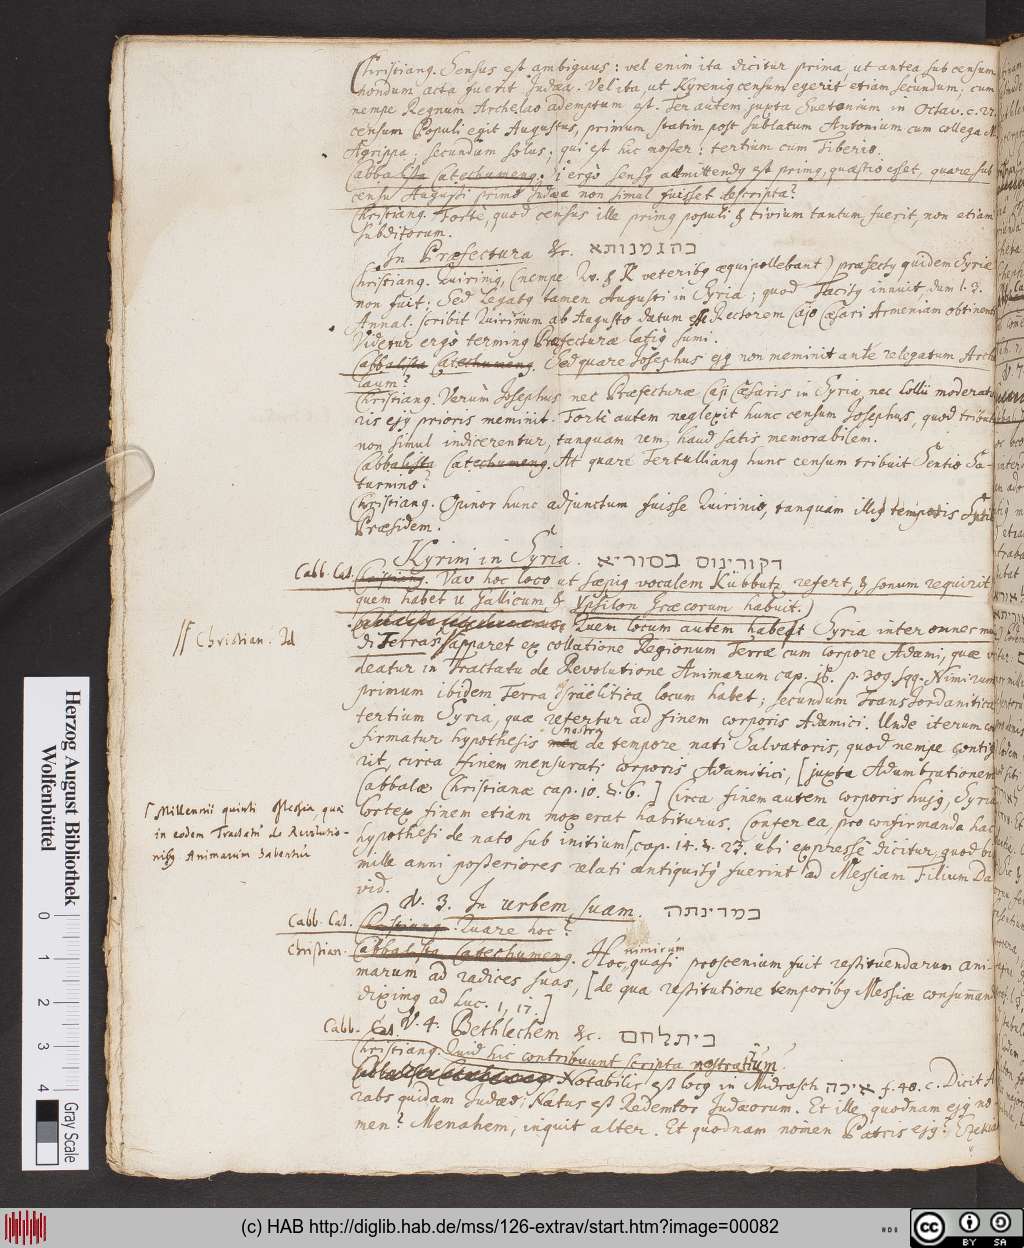 Christianꝯ. Sensus est ambiguus: vel enim ita dicitur prima, ut antea sub censum
nondum acta fuerit Judæa. Vel ita, ut Kyreniꝯ censum egerit etiam secundum; cum
nempe Regnum Archelao ademptum est. Ter autem juxta Suetonium in Octav. c. 27.
censum Populi egit Augustus, primum statim post sublatum Antonium cum collega M.
Agrippa; secundum solus; qui est hic noster: tertium cum Tiberio.
Cabbalista Catechumenꝯ. Si ergò sensꝯ admittendꝯ est primꝯ, quæstio esset, quare sub
censu Augusti primô Judæa non simul fuisset descripta?
Christianꝯ. Fortè, quod census ille primꝯ populi & civium tantum fuerit, non etiam
subditorum.
In Præfectura &c. בהגמנותא
Christianꝯ. Quiriniꝯ, (nempe Qv. & K veteribꝯ æquipollebant) præfectꝯ quidem Syriæ
non fuit: Sed Legatꝯ tamen Augusti in Syria; quod Tacitꝯ innuit, dum l. 3.
Annal. scribit Quirinum ab Augusto datum esse Rectorem Cajo Cæsari Armeniam obtinenti
Videtur ergo terminꝯ Præfecturæ latiꝯ sumi.
Cabbalista Catechumenꝯ. Sed quare Josephus ejꝯ non meminit ante relegatum Arche
laum?
Christianꝯ. Verùm Josephus nec Præfecturæ Caji Cæsaris in Syria, nec Lollii moderato
ris ejꝯ prioris meminit. Fortè autem neglexit hunc censum Josephus, quod tributa
non simul indicerentur, tanquam rem, haud satis memorabilem.
Cabbalista Catechumenꝯ. At quare Tertullianꝯ hunc censum tribuit Sentio Sa-
turnino?
Christianꝯ. Opinor hunc adjunctum fuisse Quirinio, tanquam illiꝯ temporis Syriæ
Præsidem.
Kyrini in Syria. דקורינוס בסוריא
Cabb. Cat. Christianꝯ. Vav hoc loco ut sæpiꝯ vocalem Kübbutz refert, & sonum requirit
quem habet u Gallicum & Ypsilon Græcorum habuit.)
Quem locum autem habebat Syria inter omnes mun
// Christian. Id
di Terras? // apparet ex collatione Regionum Terræ cum corpore Adami, quæ vi
deatur in Tractatu de Revolutione Animarum cap. 16. p. 309. sqq. Nimirum
primum ibidem Terra Israëlitica locum habet; secundum Transjordanitica
tertium Syria, quæ refertur ad finem corporis Adamici. Unde iterum con
firmatur hypothesis mea nostra de tempore nati Salvatoris, quod nempe contige
rit, circa finem mensurati corporis Adamitici, [juxta Adumbrationem
Cabbalæ Christianæ cap. 10. §. 6.] Circa finem autem corporis hujꝯ, Syria
Cortex finem etiam mox erat habiturus. Confer ea, pro confirmanda hac
[Millennii quinti Messiæ, quæ
in eodem Tractatu de Revolutio-
nibꝯ Animarum habentur
hypothesi de nato sub initium [cap. 14. §. 23. ubi expressè dicitur, quod bis
mille anni posteriores relati antiquitꝯ fuerint ad Messiam Filium Da
vid.
V. 3. In urbem suam. במדינתה
Cabb. Cat. Christianꝯ. Quare hoc?
Christian. Cabbalista Catechumenꝯ. Hoc nimirum quasi proscenium fuit restituendarum ani-
marum ad radices suas, [de qua restitutione temporibꝯ Messiæ consumman
diximꝯ ad Luc. 1, 17.]
V. 4. Bethlechem &c. ביתלחם
Cabb. Cat. Christianꝯ. Quid hic contribuunt scripta nostratium?
Notabilis est locꝯ in Midrasch איכה f. 48. c. Dicit A
rabs quidam Judæo; Natus est Redemtor Judæorum. Et ille, quodnam ejꝯ no
men? Menahem, inquit alter. Et quodnam nomen Patris ejꝯ? Ezekia
Herzog August Bibliothek
Wolfenbüttel
0 1 2 3 4
Gray Scale
(c) HAB http://diglib.hab.de/mss/126-extrav/start.htm?image=00082
cc BY SA